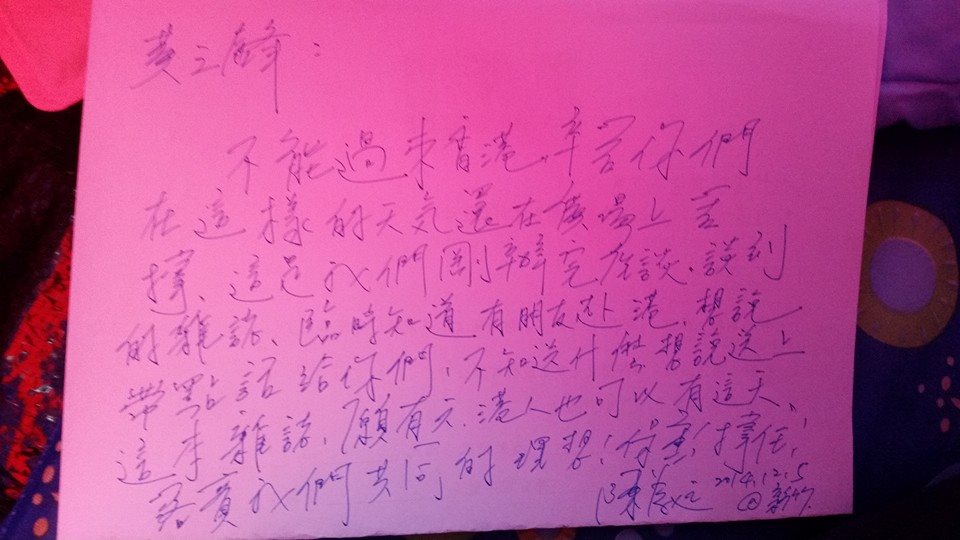 黃之鋒：
不能過來香港，辛苦你們
在這樣的天気還在廣場上苦
撐、這是我們剛辦完座談、談到
的雜誌、臨時知道有朋友赴港、想說
帶點話給你們，不知送什麼，想說送上
這本雜誌，願有天，港人也可以有這天，
落實我們共同的理想！保重！撐住！
2014.12.5
@新竹